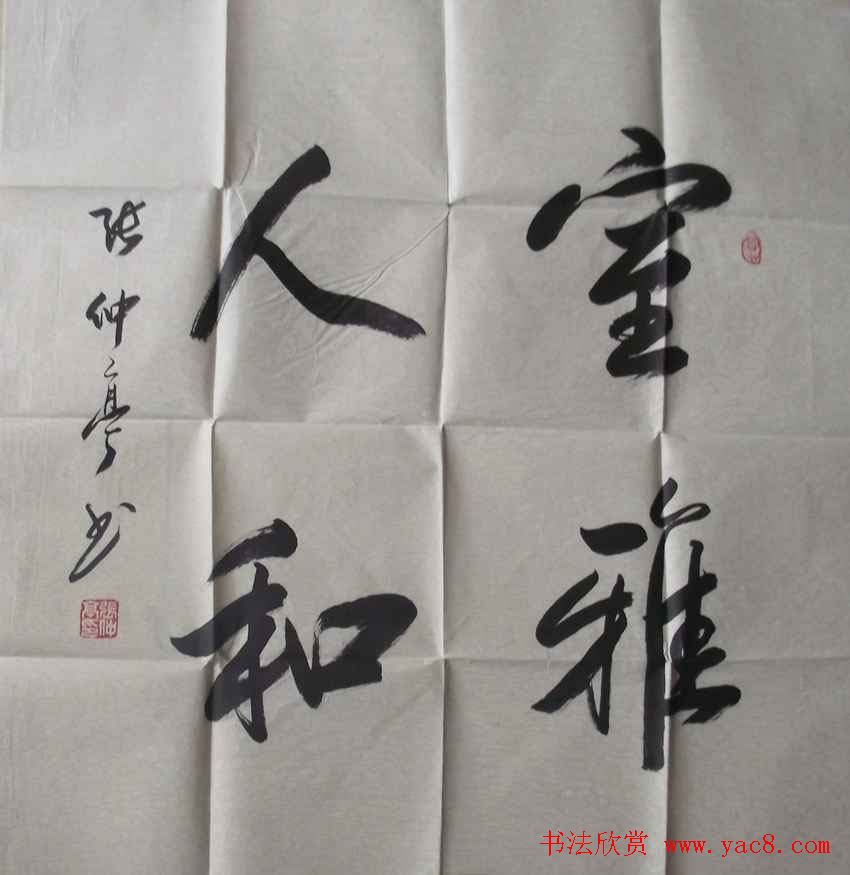 室雅
人和
张仲亭书
張仲亭印
书法欣赏 www.yac8.com